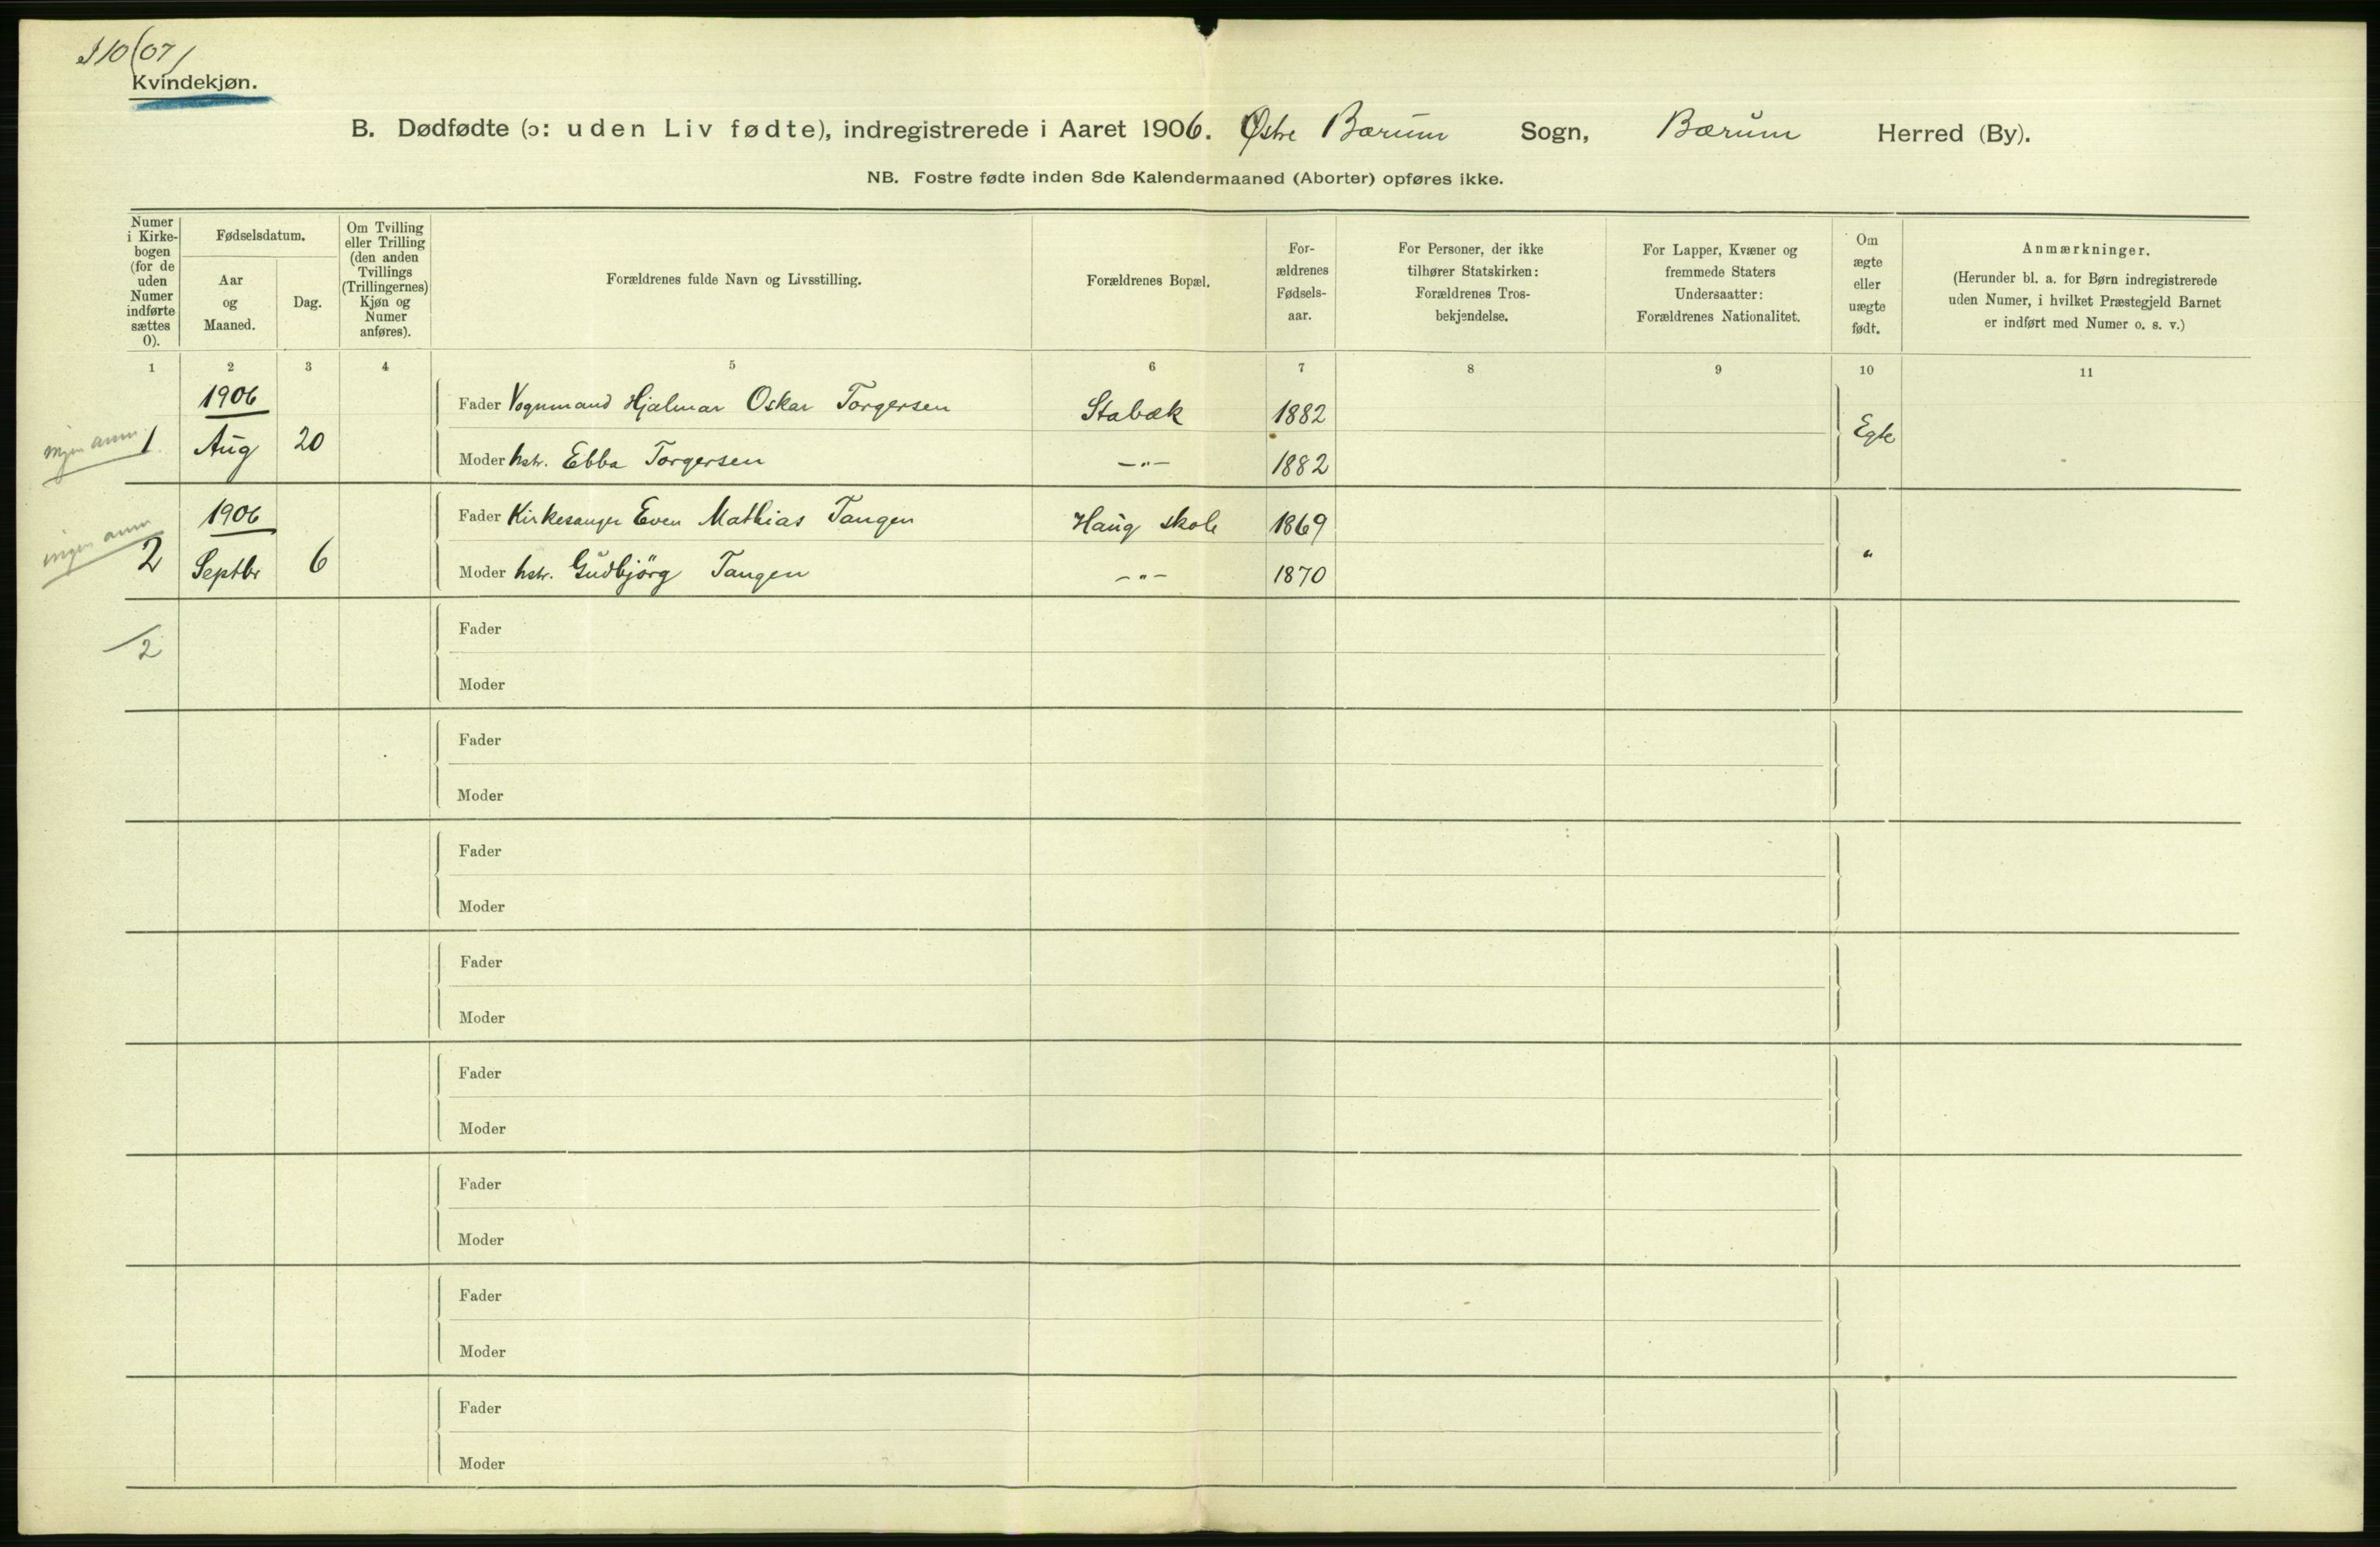 Kvindekjøn.
B. Dødfødte (ɔ: uden Liv fødte), indregistrerede i Aaret 1906. Østre Bærum Sogn, Bærum Herred (By).
NB. Fostre fødte inden 8de Kalendermaaned (Aborter) opføres ikke.
Numer
i Kirke-
bogen
(for de
uden
Numer
indførte
sættes
0).
Fødselsdatum.
Aar
og
Maaned.
Dag.
Om Tvilling
eller Trilling
(den anden
Tvillings
(Trillingernes)
Kjøn og
Numer
anføres).
Forældrenes fulde Navn og Livsstilling.
Forældrenes Bopæl.
For-
ældrenes
Fødsels-
aar.
For Personer, der ikke
tilhører Statskirken:
Forældrenes Tros-
bekjendelse.
For Lapper, Kvæner og
fremmede Staters
Undersaatter:
Forældrenes Nationalitet.
Om
ægte
eller
uægte
født.
Anmærkninger.
(Herunder bl. a. for Børn indregistrerede
uden Numer, i hvilket Præstegjeld Barnet
er indført med Numer o. s. v.)
1 2 3 4 5 6 7 8 9 10 11
1906
Fader Vognmand Hjalmar Oskar Torgersen Stabæk 1882
ingen anm. 1 Aug 20 Egte
Moder hstr. Ebba Torgersen —"— 1882
1906
Fader Kirkesanger Even Mathias Tangen Haug skole 1869
ingen anm 2 Septbr 6 "
Moder hstr. Gudbjörg Tangen —"— 1870
2
Fader
Moder
Fader
Moder
Fader
Moder
Fader
Moder
Fader
Moder
Fader
Moder
Fader
Moder
Fader
Moder